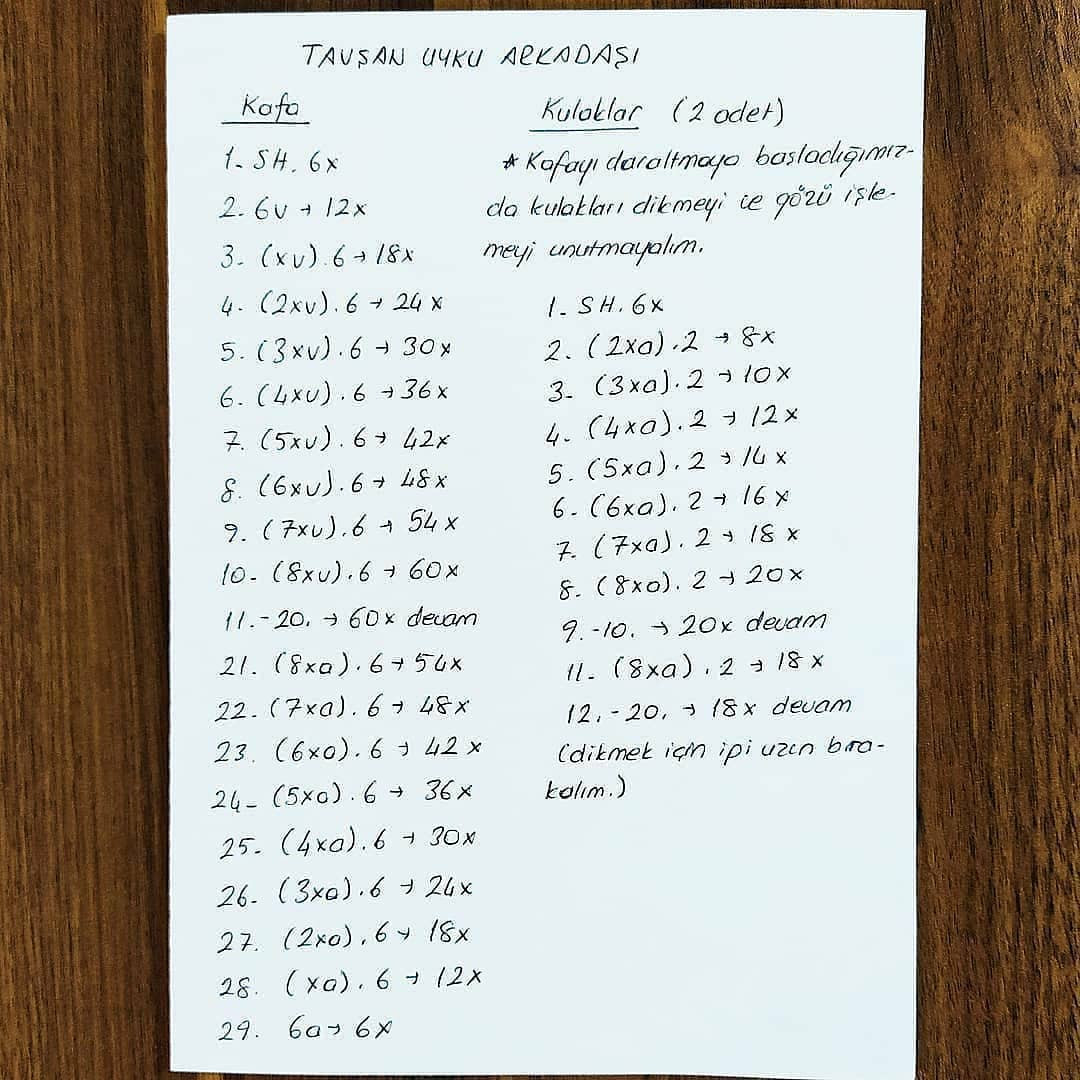 TAVŞAN UYKU ARKADAŞI
Kafa
1- SH. 6x
2. 6v → 12x
3- (xv).6 → 18x
4. (2xv).6 → 24x
5. (3xv).6 → 30x
6. (4xv).6 → 36x
7. (5xv).6 → 42x
8. (6xv).6 → 48x
9. (7xv).6 → 54x
10- (8xv).6 → 60x
11.-20. → 60x devam
21. (8xa).6 → 54x
22. (7xa).6 → 48x
23. (6xa).6 → 42x
24- (5xa).6 → 36x
25- (4xa).6 → 30x
26- (3xa).6 → 24x
27. (2xa).6 → 18x
28. (xa).6 → 12x
29. 6a → 6x
Kulaklar (2 adet)
* Kafayı daraltmaya başladığımız-
da kulakları dikmeyi ve gözü işle-
meyi unutmayalım.
1- SH. 6x
2. (2xa).2 → 8x
3- (3xa).2 → 10x
4- (4xa).2 → 12x
5. (5xa).2 → 14x
6- (6xa).2 → 16x
7. (7xa).2 → 18x
8. (8xa).2 → 20x
9.-10. → 20x devam
11- (8xa).2 → 18x
12.-20. → 18x devam
(dikmek için ipi uzun bıra-
kalım.)